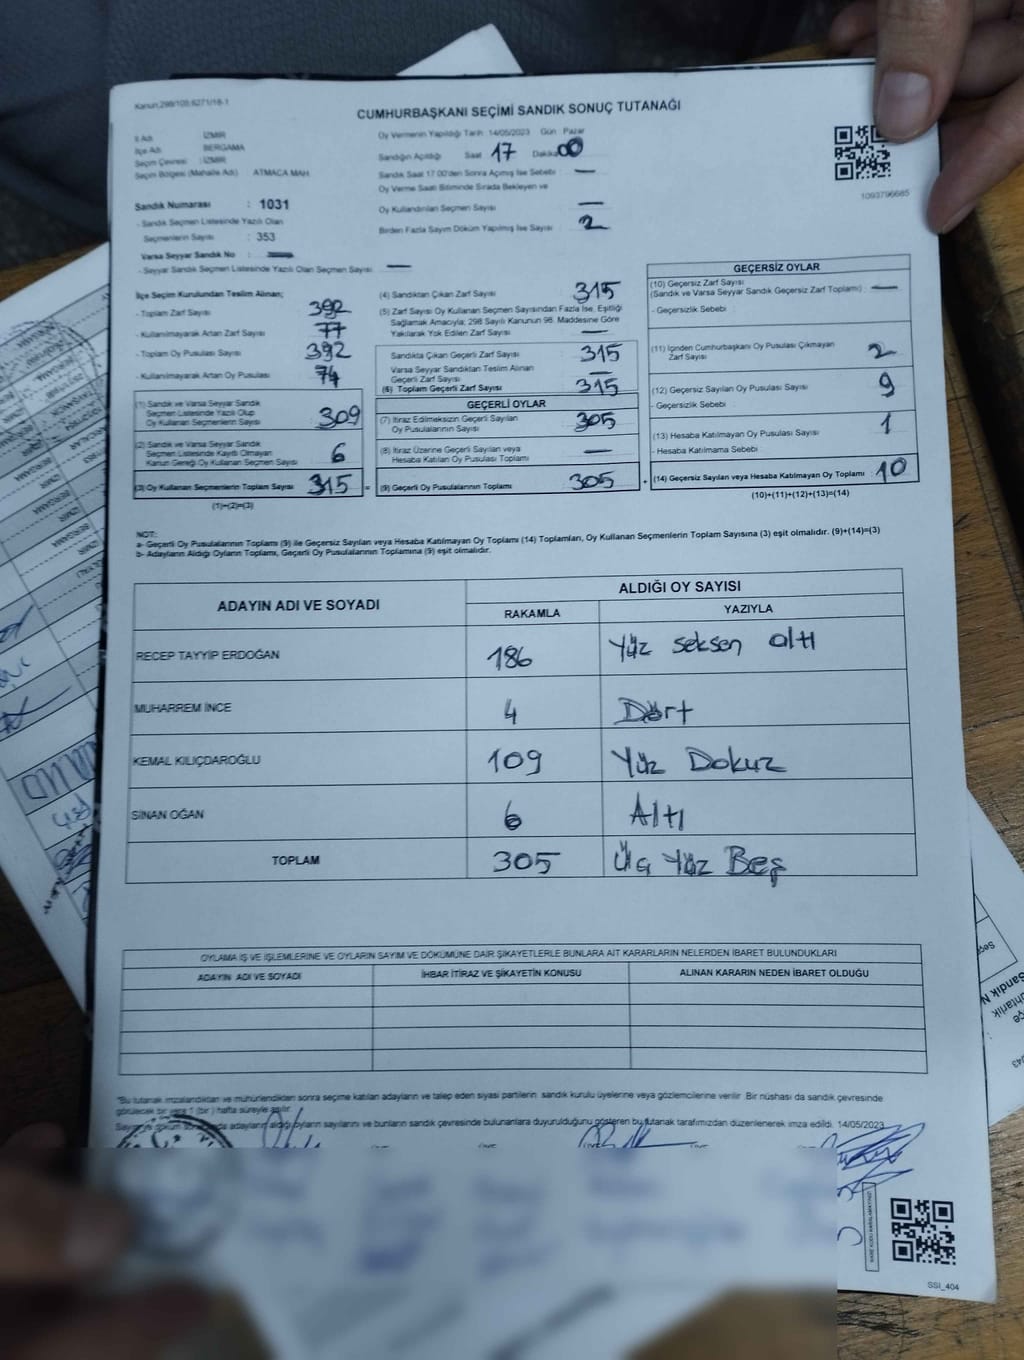 Kanun:298/105,6271/18-1
CUMHURBAŞKANI SEÇİMİ SANDIK SONUÇ TUTANAĞI
İl Adı : İZMİR
İlçe Adı : BERGAMA
Seçim Çevresi : İZMİR
Seçim Bölgesi (Mahalle Adı) ATMACA MAH.
Sandık Numarası : 1031
- Sandık Seçmen Listesinde Yazılı Olan
Seçmenlerin Sayısı : 353
Varsa Seyyar Sandık No : —
- Seyyar Sandık Seçmen Listesinde Yazılı Olan Seçmen Sayısı : —
Oy Vermenin Yapıldığı Tarih :14/05/2023 Gün : Pazar
Sandığın Açıldığı Saat : 17 Dakika: 00
Sandık Saat 17:00'den Sonra Açılmış İse Sebebi : —
Oy Verme Saati Bitiminde Sırada Bekleyen ve
Oy Kullandırılan Seçmen Sayısı : —
Birden Fazla Sayım Döküm Yapılmış İse Sayısı : 2
1093796665
İlçe Seçim Kurulundan Teslim Alınan;
- Toplam Zarf Sayısı : 392
- Kullanılmayarak Artan Zarf Sayısı : 77
- Toplam Oy Pusulası Sayısı : 392
- Kullanılmayarak Artan Oy Pusulası : 74
(1) Sandık ve Varsa Seyyar Sandık
Seçmen Listesinde Yazılı Olup
Oy Kullanan Seçmenlerin Sayısı : 309
(2) Sandık ve Varsa Seyyar Sandık
Seçmen Listesinde Kayıtlı Olmayan
Kanun Gereği Oy Kullanan Seçmen Sayısı : 6
(3) Oy Kullanan Seçmenlerin Toplam Sayısı : 315 =
(1)+(2)=(3)
(4) Sandıktan Çıkan Zarf Sayısı : 315
(5) Zarf Sayısı Oy Kullanan Seçmen Sayısından Fazla İse, Eşitliği
Sağlamak Amacıyla; 298 Sayılı Kanunun 98. Maddesine Göre
Yakılarak Yok Edilen Zarf Sayısı : —
Sandıkta Çıkan Geçerli Zarf Sayısı : 315
Varsa Seyyar Sandıktan Teslim Alınan
Geçerli Zarf Sayısı : —
(6) Toplam Geçerli Zarf Sayısı : 315
GEÇERLİ OYLAR
(7) İtiraz Edilmeksizin Geçerli Sayılan
Oy Pusulalarının Sayısı : 305
(8) İtiraz Üzerine Geçerli Sayılan veya
Hesaba Katılan Oy Pusulası Toplamı : —
(9) Geçerli Oy Pusulalarının Toplamı : 305 +
GEÇERSİZ OYLAR
(10) Geçersiz Zarf Sayısı
(Sandık ve Varsa Seyyar Sandık Geçersiz Zarf Toplamı) : —
- Geçersizlik Sebebi :
(11) İçinden Cumhurbaşkanı Oy Pusulası Çıkmayan
Zarf Sayısı : 2
(12) Geçersiz Sayılan Oy Pusulası Sayısı : 9
- Geçersizlik Sebebi :
(13) Hesaba Katılmayan Oy Pusulası Sayısı : 1
- Hesaba Katılmama Sebebi :
(14) Geçersiz Sayılan veya Hesaba Katılmayan Oy Toplamı : 10
(10)+(11)+(12)+(13)=(14)
NOT:
a- Geçerli Oy Pusulalarının Toplamı (9) ile Geçersiz Sayılan veya Hesaba Katılmayan Oy Toplamı (14) Toplamları, Oy Kullanan Seçmenlerin Toplam Sayısına (3) eşit olmalıdır. (9)+(14)=(3)
b- Adayların Aldığı Oyların Toplamı, Geçerli Oy Pusulalarının Toplamına (9) eşit olmalıdır.
ADAYIN ADI VE SOYADI ALDIĞI OY SAYISI
RAKAMLA YAZIYLA
RECEP TAYYİP ERDOĞAN 186 Yüz seksen altı
MUHARREM İNCE 4 Dört
KEMAL KILIÇDAROĞLU 109 Yüz Dokuz
SİNAN OĞAN 6 Altı
TOPLAM 305 Üç Yüz Beş
OYLAMA İŞ VE İŞLEMLERİNE VE OYLARIN SAYIM VE DÖKÜMÜNE DAİR ŞİKAYETLERLE BUNLARA AİT KARARLARIN NELERDEN İBARET BULUNDUKLARI
ADAYIN ADI VE SOYADI İHBAR İTİRAZ VE ŞİKAYETİN KONUSU ALINAN KARARIN NEDEN İBARET OLDUĞU
*Bu tutanak imzalandıktan ve mühürlendikten sonra seçime katılan adayların ve talep eden siyasi partilerin sandık kurulu üyelerine veya gözlemcilerine verilir. Bir nüshası da sandık çevresinde
görülecek bir yere 1 (bir) hafta süreyle asılır.
adayların aldığı oyların sayılarını ve bunların sandık çevresinde bulunanlara duyurulduğunu gösteren bu tutanak tarafımızdan düzenlenerek imza edildi. 14/05/2023
SSI_404